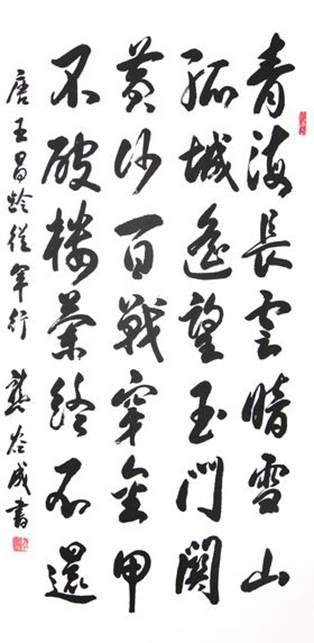 青海長雲暗雪山
孤城遙望玉門關
黃沙百戰穿金甲
不破樓蘭終不還
唐王昌齡從軍行 成書